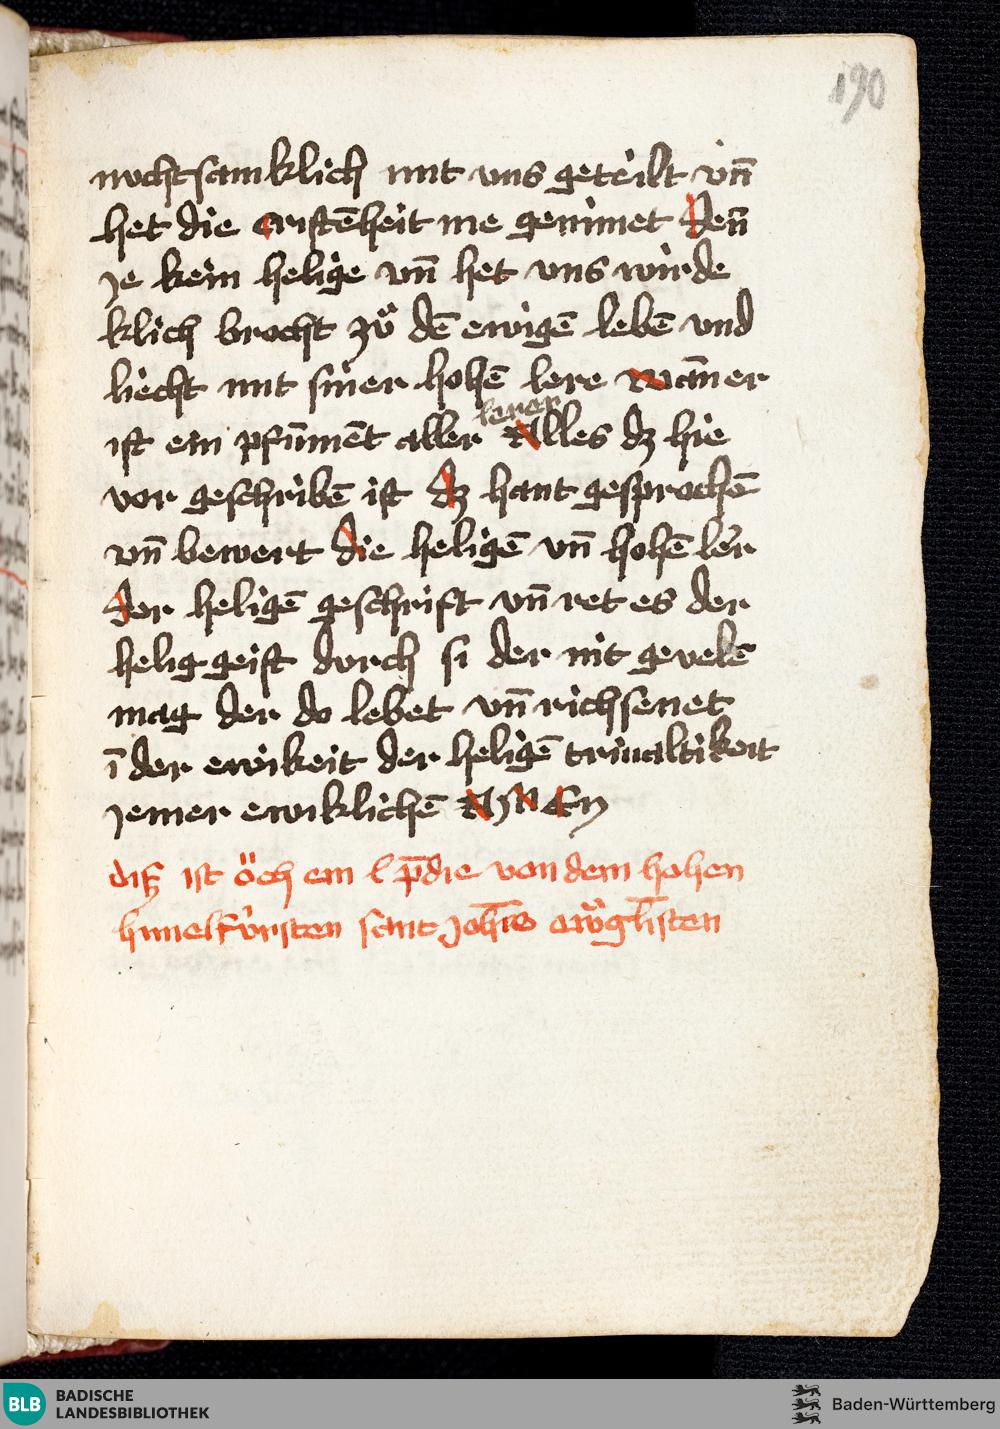 190
nochtsamklich mit vns geteilt vn̄
het die cristēheit me gemmet den̄
je kein helige vn̄ het vns wirde
klich brocht zů dē ewigē lebē vnd
liecht mit siner hohē lere wān er
lerer
ist ein pfūmēt aller Alles dz hie
vor geschribē ist dz hant gesprochē
vn̄ bewert die heligē vn̄ hohē ler̄
der heligē geschrift vn̄ ret es der
helig geist dorch si der nit gevelē
mag der do lebet vn̄ richsenet
ī der ewikeit der heligē trivaltikeit
jemer ewiklichē AMEn
diß ist öch ein l p̄die von dem hohen
himelfürsten sant joh̄is ewg̊listen
BLB BADISCHE
LANDESBIBLIOTHEK
Baden-Württemberg